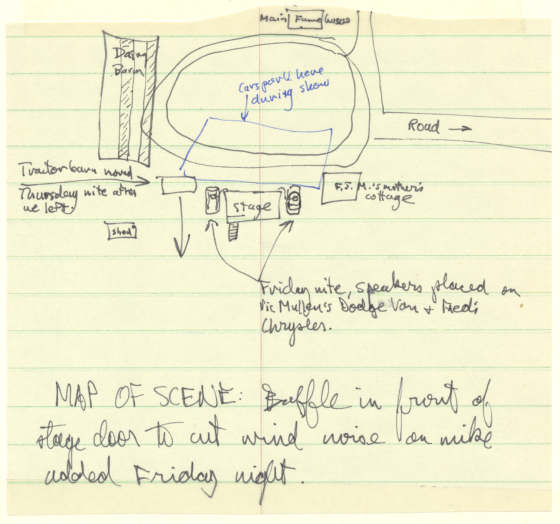 Main Farm house
Dairy
Barn
Cars park here
during show
Road
Tractor barn moved
Thursday nite after
we left.
F.S. M.'s mother's
cottage
Stage
shed
Friday nite, speakers placed on
Vic Mullen's Dodge Van + Fred's
Chrysler.
MAP OF SCENE: Baffle in front of
stage door to cut wind noise on mike
added Friday night.